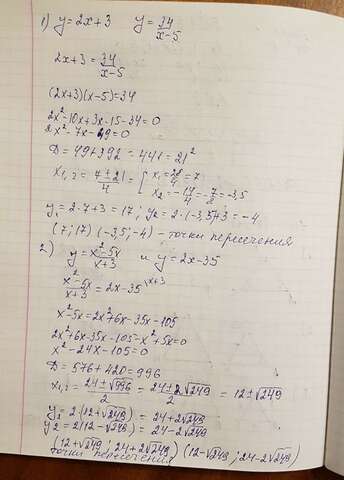 1) y=2x+3 y=34/x-5
2x+3=34/x-5
(2x+3)(x-5)=34
2x²-10x+3x-15-34=0
2x²-7x-49=0
D=49+392=441=21²
x1,2=7±21/4= [x1=28/4=7
x2=-14/4=-7/8=-3,5
y1=2·7+3=17; y2=2·(-3,5)+3=-4
(7;17) (-3,5;-4) - точки пересечения
2) y=x²-5x/x+3 и y=2x-35
x²-5x/x+3=2x-35 \x+3
x²-5x=2x²+6x-35x-105
2x²+6x-35x-105-x²+5x=0
x²-24x-105=0
D=576+420=996
x1,2=24±√996/2=24±2√249/2=12±√249
y1=2·(12+√249)=24+2√249
y2=2(12-√249)=24-2√249
(12+√249; 24+2√249) (12-√249; 24-2√249)
точки пересечения